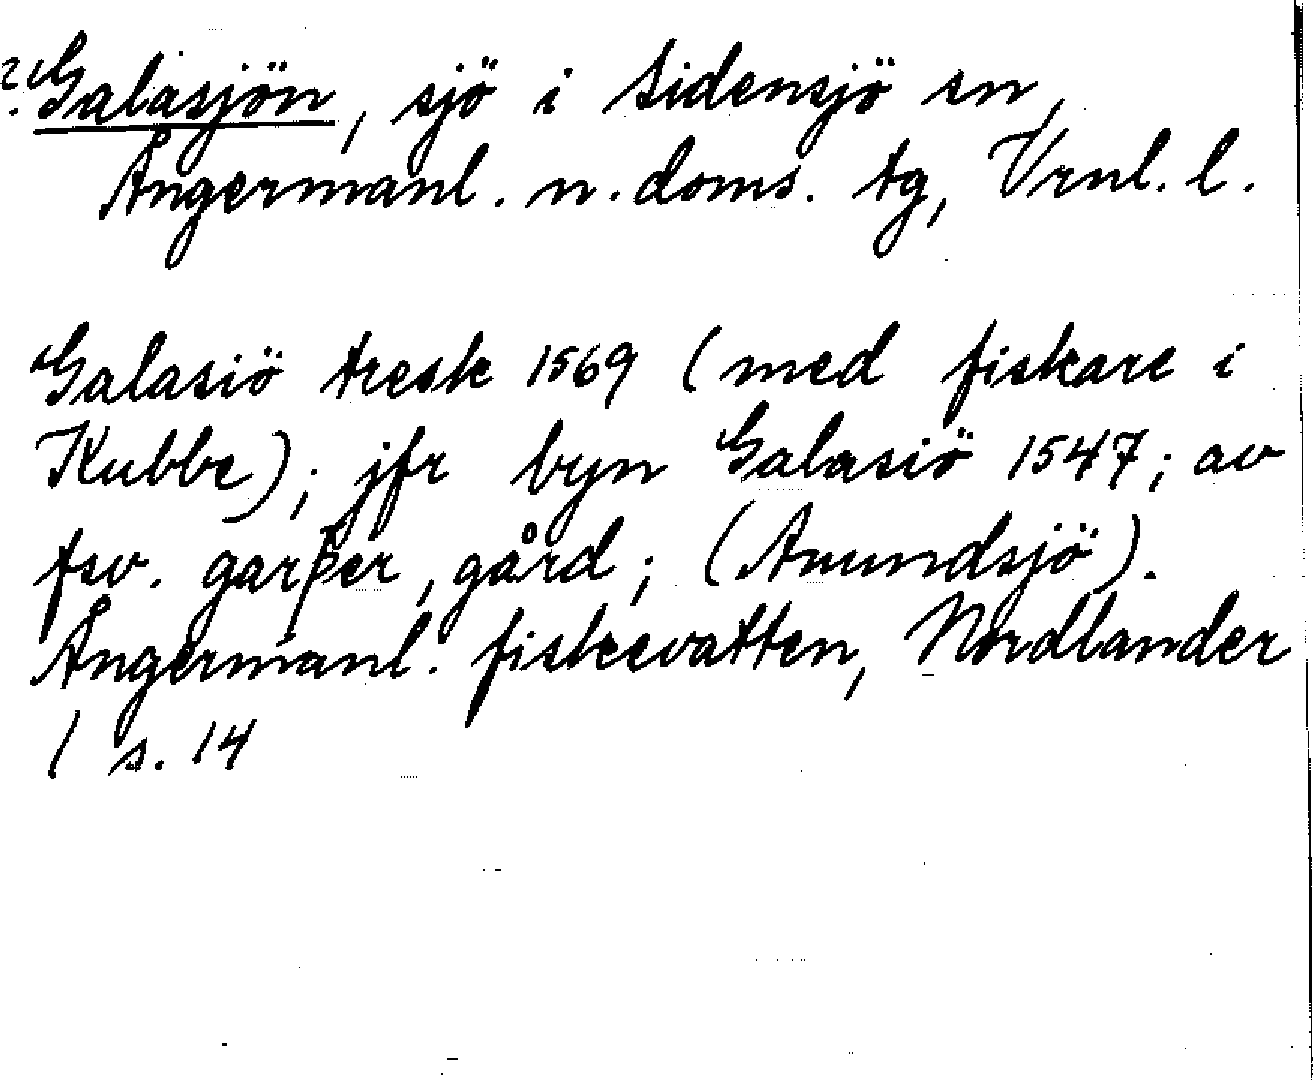 ?Galasjön, sjö i Sidensjö sn,
Ångermanl. n. doms. tg, Vrnl. l.
Galasiö tresk 1569 (med fiskare i
Kubbe); jfr byn Galasiö 1547; av
fsv. garþer, gård; (Anundsjö).
Ångermanl. fiskevatten, Nordlander
1 s. 14